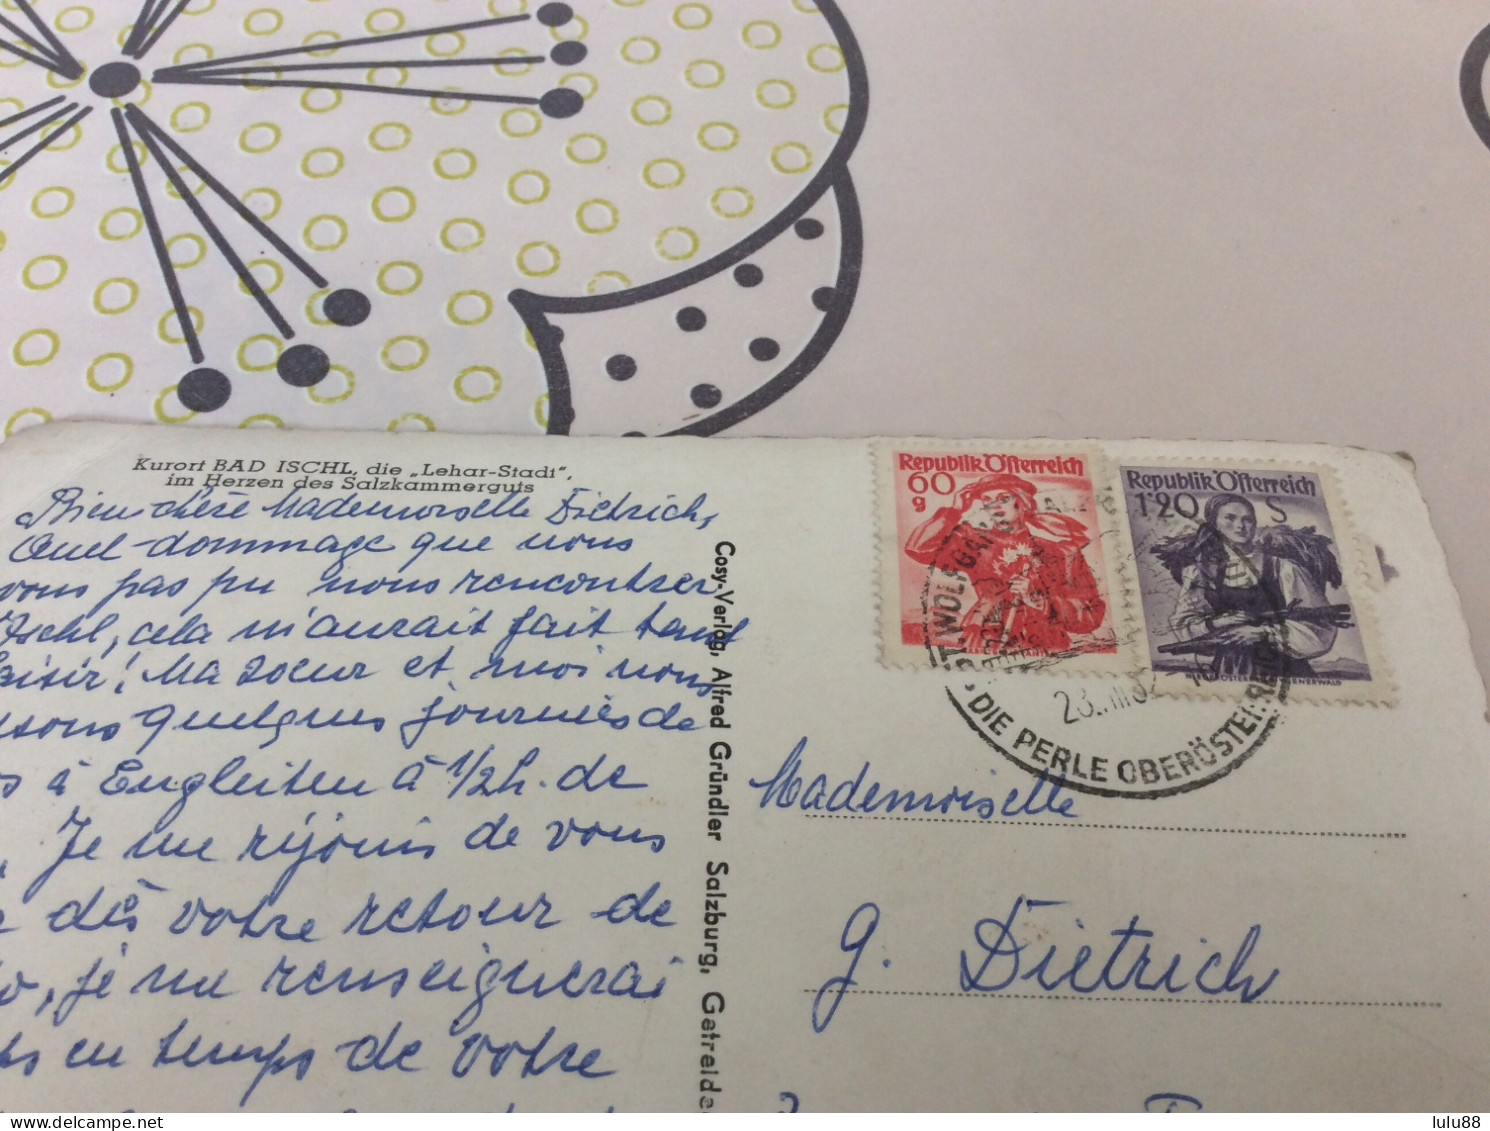 Kurort BAD ISCHL, die „Lehar-Stadt",
im Herzen des Salzkammerguts
Bien chère Mademoiselle Dietrich,
Quel dommage que nous
vous pas pu nous rencontrer
Ischl, cela m'aurait fait tant
aisir! Ma soeur et moi nous
sons quelques journées de
s à Engleiten à 1/2h. de
Je me réjouis de vous
dès votre retour de
o, je me renseignerai
ts en temps de votre
Cosy-Verlag, Alfred Gründler Salzburg, Getreide
Republik Österreich
60
g
Republik Österreich
1'20 S
ST. WOLFGANG
DIE PERLE OBERÖSTERREICHS
Mademoiselle
G. Dietrich
lulu88